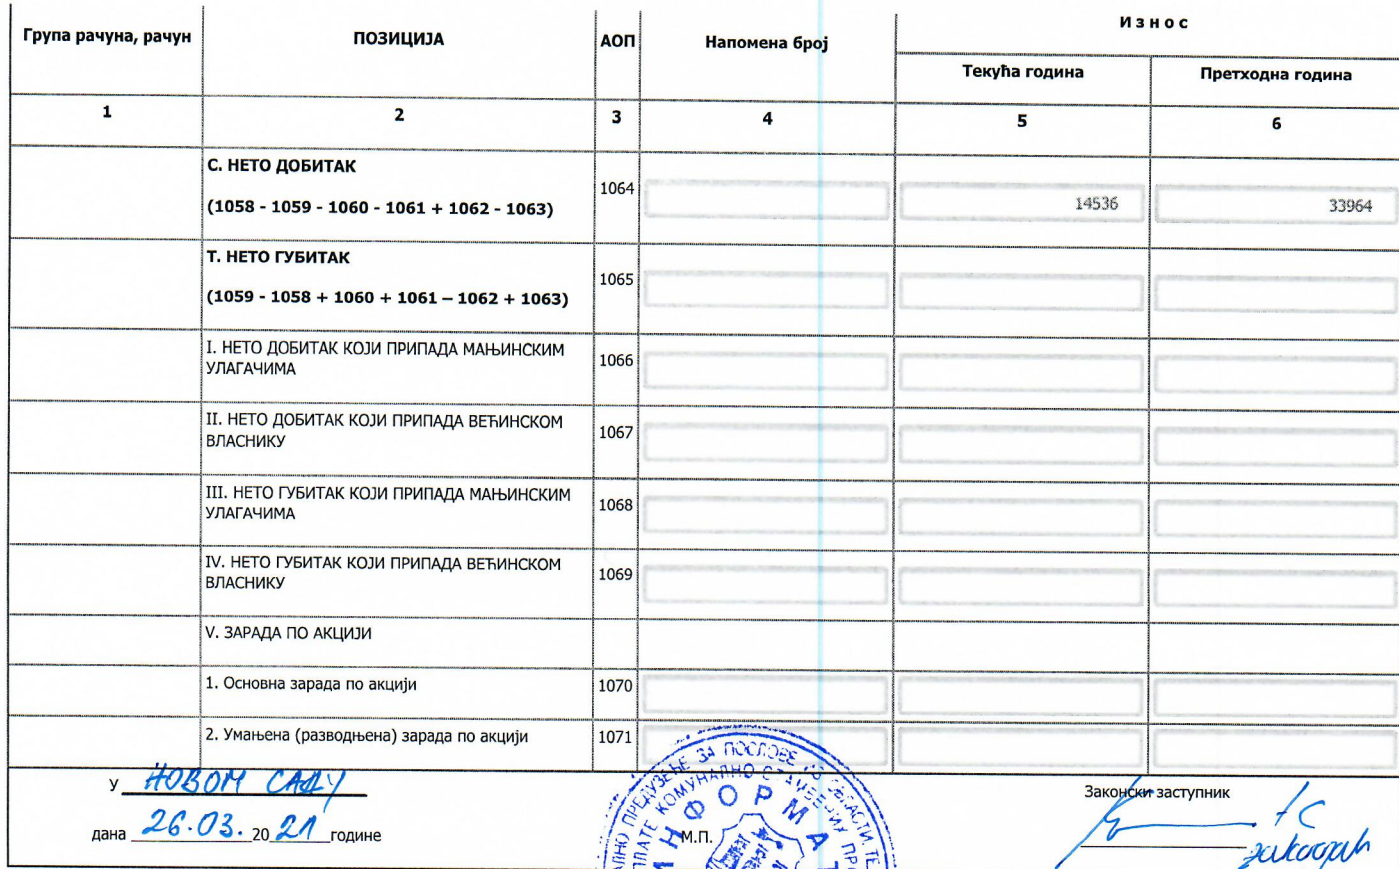 Група рачуна, рачун ПОЗИЦИЈА АОП Напомена број Износ
Текућа година Претходна година
1 2 3 4 5 6
С. НЕТО ДОБИТАК
(1058 - 1059 - 1060 - 1061 + 1062 - 1063) 1064 14536 33964
Т. НЕТО ГУБИТАК
(1059 - 1058 + 1060 + 1061 – 1062 + 1063) 1065
I. НЕТО ДОБИТАК КОЈИ ПРИПАДА МАЊИНСКИМ
УЛАГАЧИМА 1066
II. НЕТО ДОБИТАК КОЈИ ПРИПАДА ВЕЋИНСКОМ
ВЛАСНИКУ 1067
III. НЕТО ГУБИТАК КОЈИ ПРИПАДА МАЊИНСКИМ
УЛАГАЧИМА 1068
IV. НЕТО ГУБИТАК КОЈИ ПРИПАДА ВЕЋИНСКОМ
ВЛАСНИКУ 1069
V. ЗАРАДА ПО АКЦИЈИ
1. Основна зарада по акцији 1070
2. Умањена (разводњена) зарада по акцији 1071
У НОВОМ САДУ Законски заступник
дана 26.03. 20 21 године М.П.
ПРЕДУЗЕЋЕ ЗА ПОСЛОВЕ
КОМУНАЛНО
ИНФОРМАТ